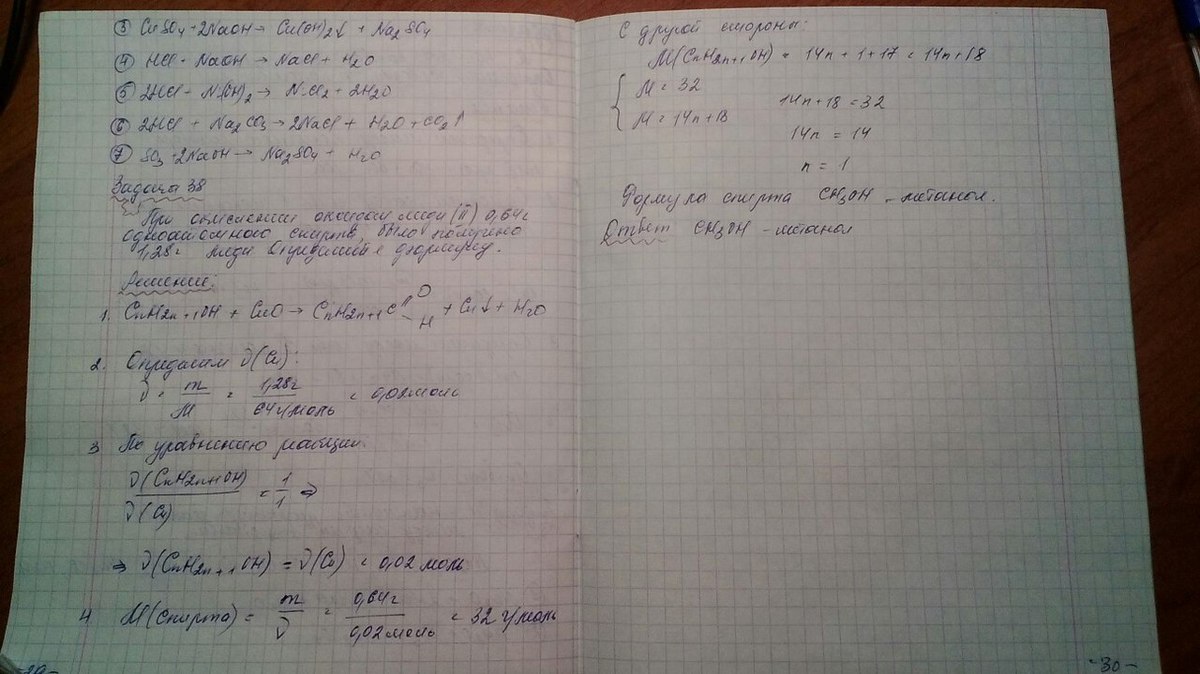 ③ CuSO4 + 2NaOH → Cu(OH)2↓ + Na2SO4
④ HCl + NaOH → NaCl + H2O
⑤ 2HCl + Ni(OH)2 → NiCl2 + 2H2O
⑥ 2HCl + Na2CO3 → 2NaCl + H2O + CO2↑
⑦ SO3 + 2NaOH → Na2SO4 + H2O
Задача 38
При окислении оксидом меди (II) 0,64г
одноатомного спирта, было получено
1,28г меди Определить формулу.
Решение:
1. CnH2n+1OH + CuO → CnH2n+1C =O -H + Cu↓ + H2O
2. Определим ν(Cu):
ν = m/M = 1,28г/64г/моль = 0,02моль
3 По уравнению реакции.
ν(CnH2n+1OH)/ν(Cu) = 1/1 ⇒
⇒ ν(CnH2n+1OH) = ν(Cu) = 0,02 моль
4 M(спирта) = m/ν = 0,64г/0,02моль = 32 г/моль
С другой стороны:
M(CnH2n+1OH) = 14n + 1 + 17 = 14n + 18
{ M = 32
M = 14n+18
14n + 18 = 32
14n = 14
n = 1
Формула спирта CH3OH - метанол.
Ответ CH3OH - метанол
- 30 -